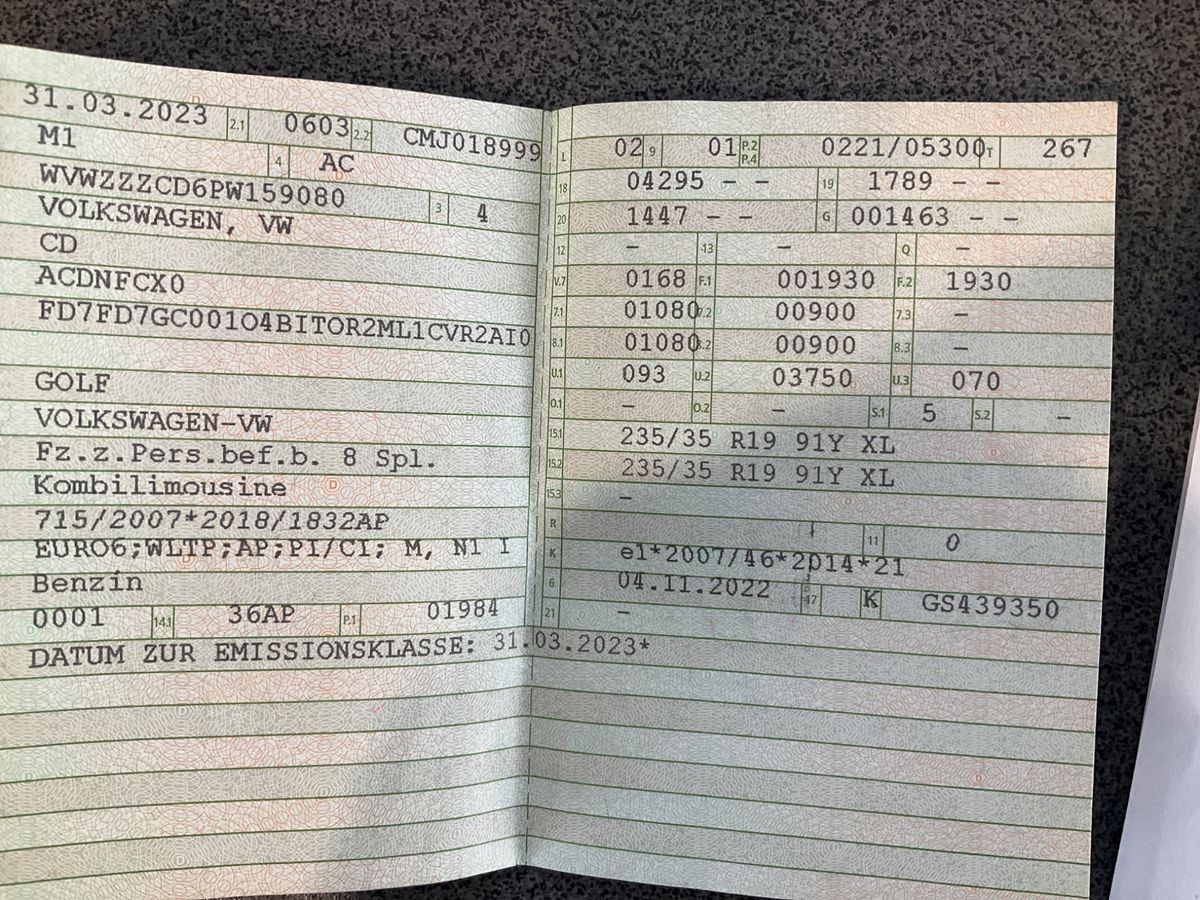 31.03.2023 2.1 0603 2.2 CMJ018999
M1 4 AC
WVWZZZCD6PW159080 3 4
VOLKSWAGEN, VW
CD
ACDNFCX0
FD7FD7GC001O4BITOR2ML1CVR2AI0
GOLF
VOLKSWAGEN-VW
Fz.z.Pers.bef.b. 8 Spl.
Kombilimousine
715/2007*2018/1832AP
EURO6;WLTP;AP;PI/CI; M, N1 I
Benzin
0001 14.1 36AP P.1 01984
DATUM ZUR EMISSIONSKLASSE: 31.03.2023*
L 02 9 01 P.2 P.4 0221/05300 T 267
18 04295 – – 19 1789 – –
20 1447 – – G 001463 – –
12 – 13 – Q –
V.7 0168 F.1 001930 F.2 1930
7.1 01080 7.2 00900 7.3 –
8.1 01080 8.2 00900 8.3 –
U.1 093 U.2 03750 U.3 070
O.1 – O.2 – S.1 5 S.2 –
15.1 235/35 R19 91Y XL
15.2 235/35 R19 91Y XL
15.3 –
R 11 0
K e1*2007/46*2014*21
6 04.11.2022 17 K 16 GS439350
21 –